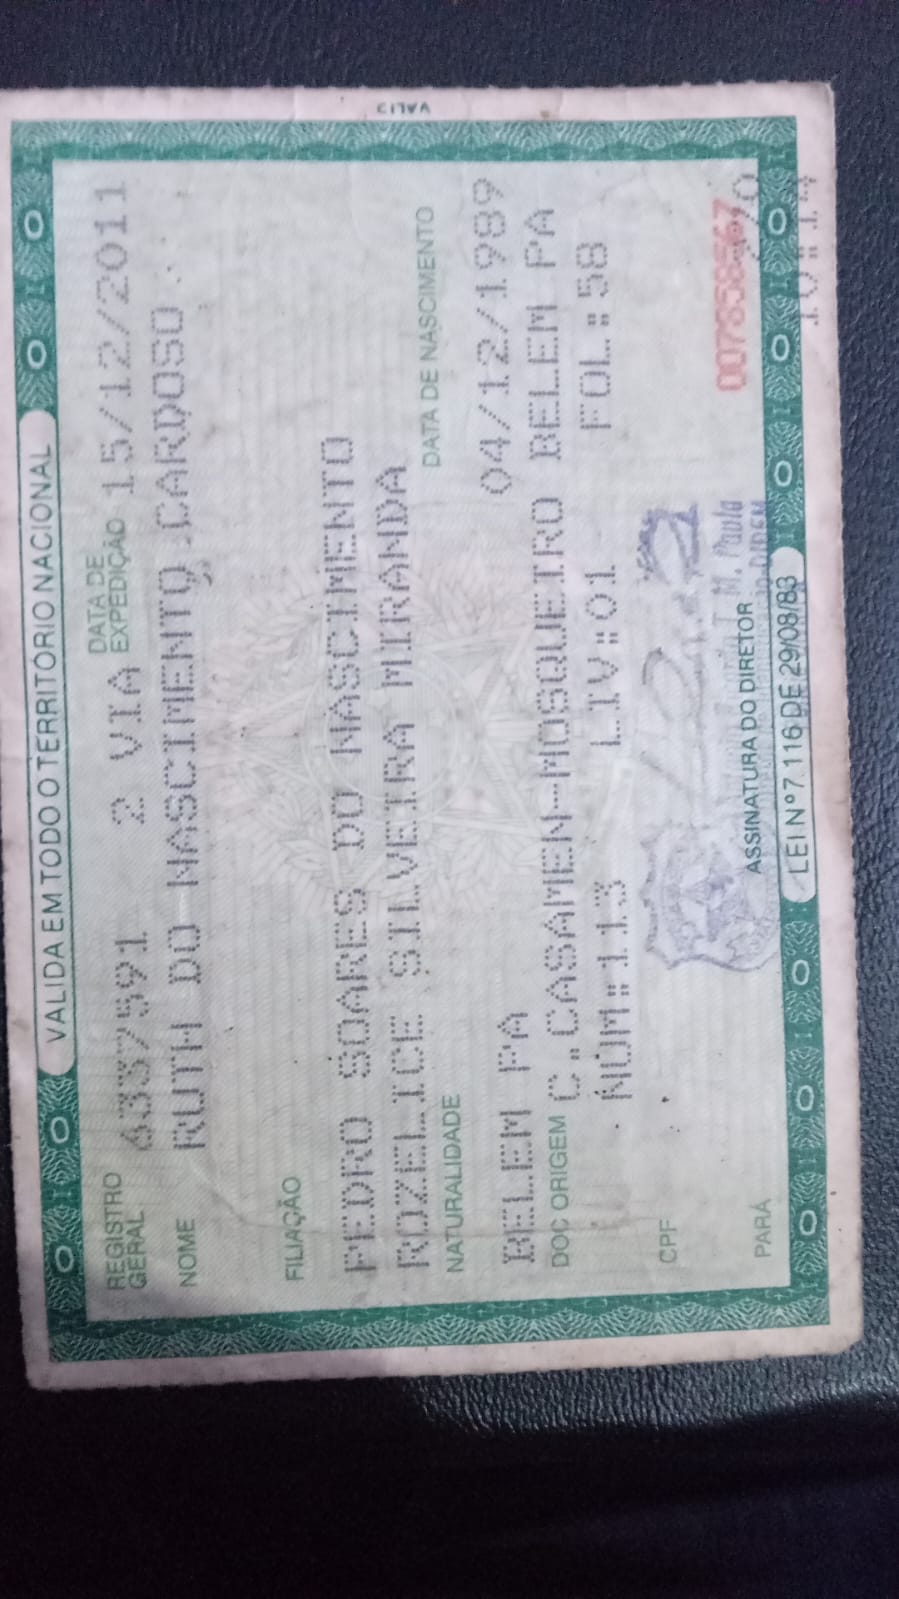 VALIDA EM TODO O TERRITORIO NACIONAL
REGISTRO GERAL 6337591 2 VIA DATA DE EXPEDIÇÃO 15/12/2011
NOME RUTH DO NASCIMENTO CARDOSO
FILIAÇÃO
PEDRO SOARES DO NASCIMENTO
ROZELICE SILVEIRA MIRANDA
NATURALIDADE DATA DE NASCIMENTO
BELEM PA 04/12/1989
DOC ORIGEM C.CASAMEN-MOSQUEIRO BELEM PA
NUM:113 LIV:01 FOL:58
CPF
M. Paula
PARÁ ASSINATURA DO DIRETOR
LEI Nº 7.116 DE 29/08/83